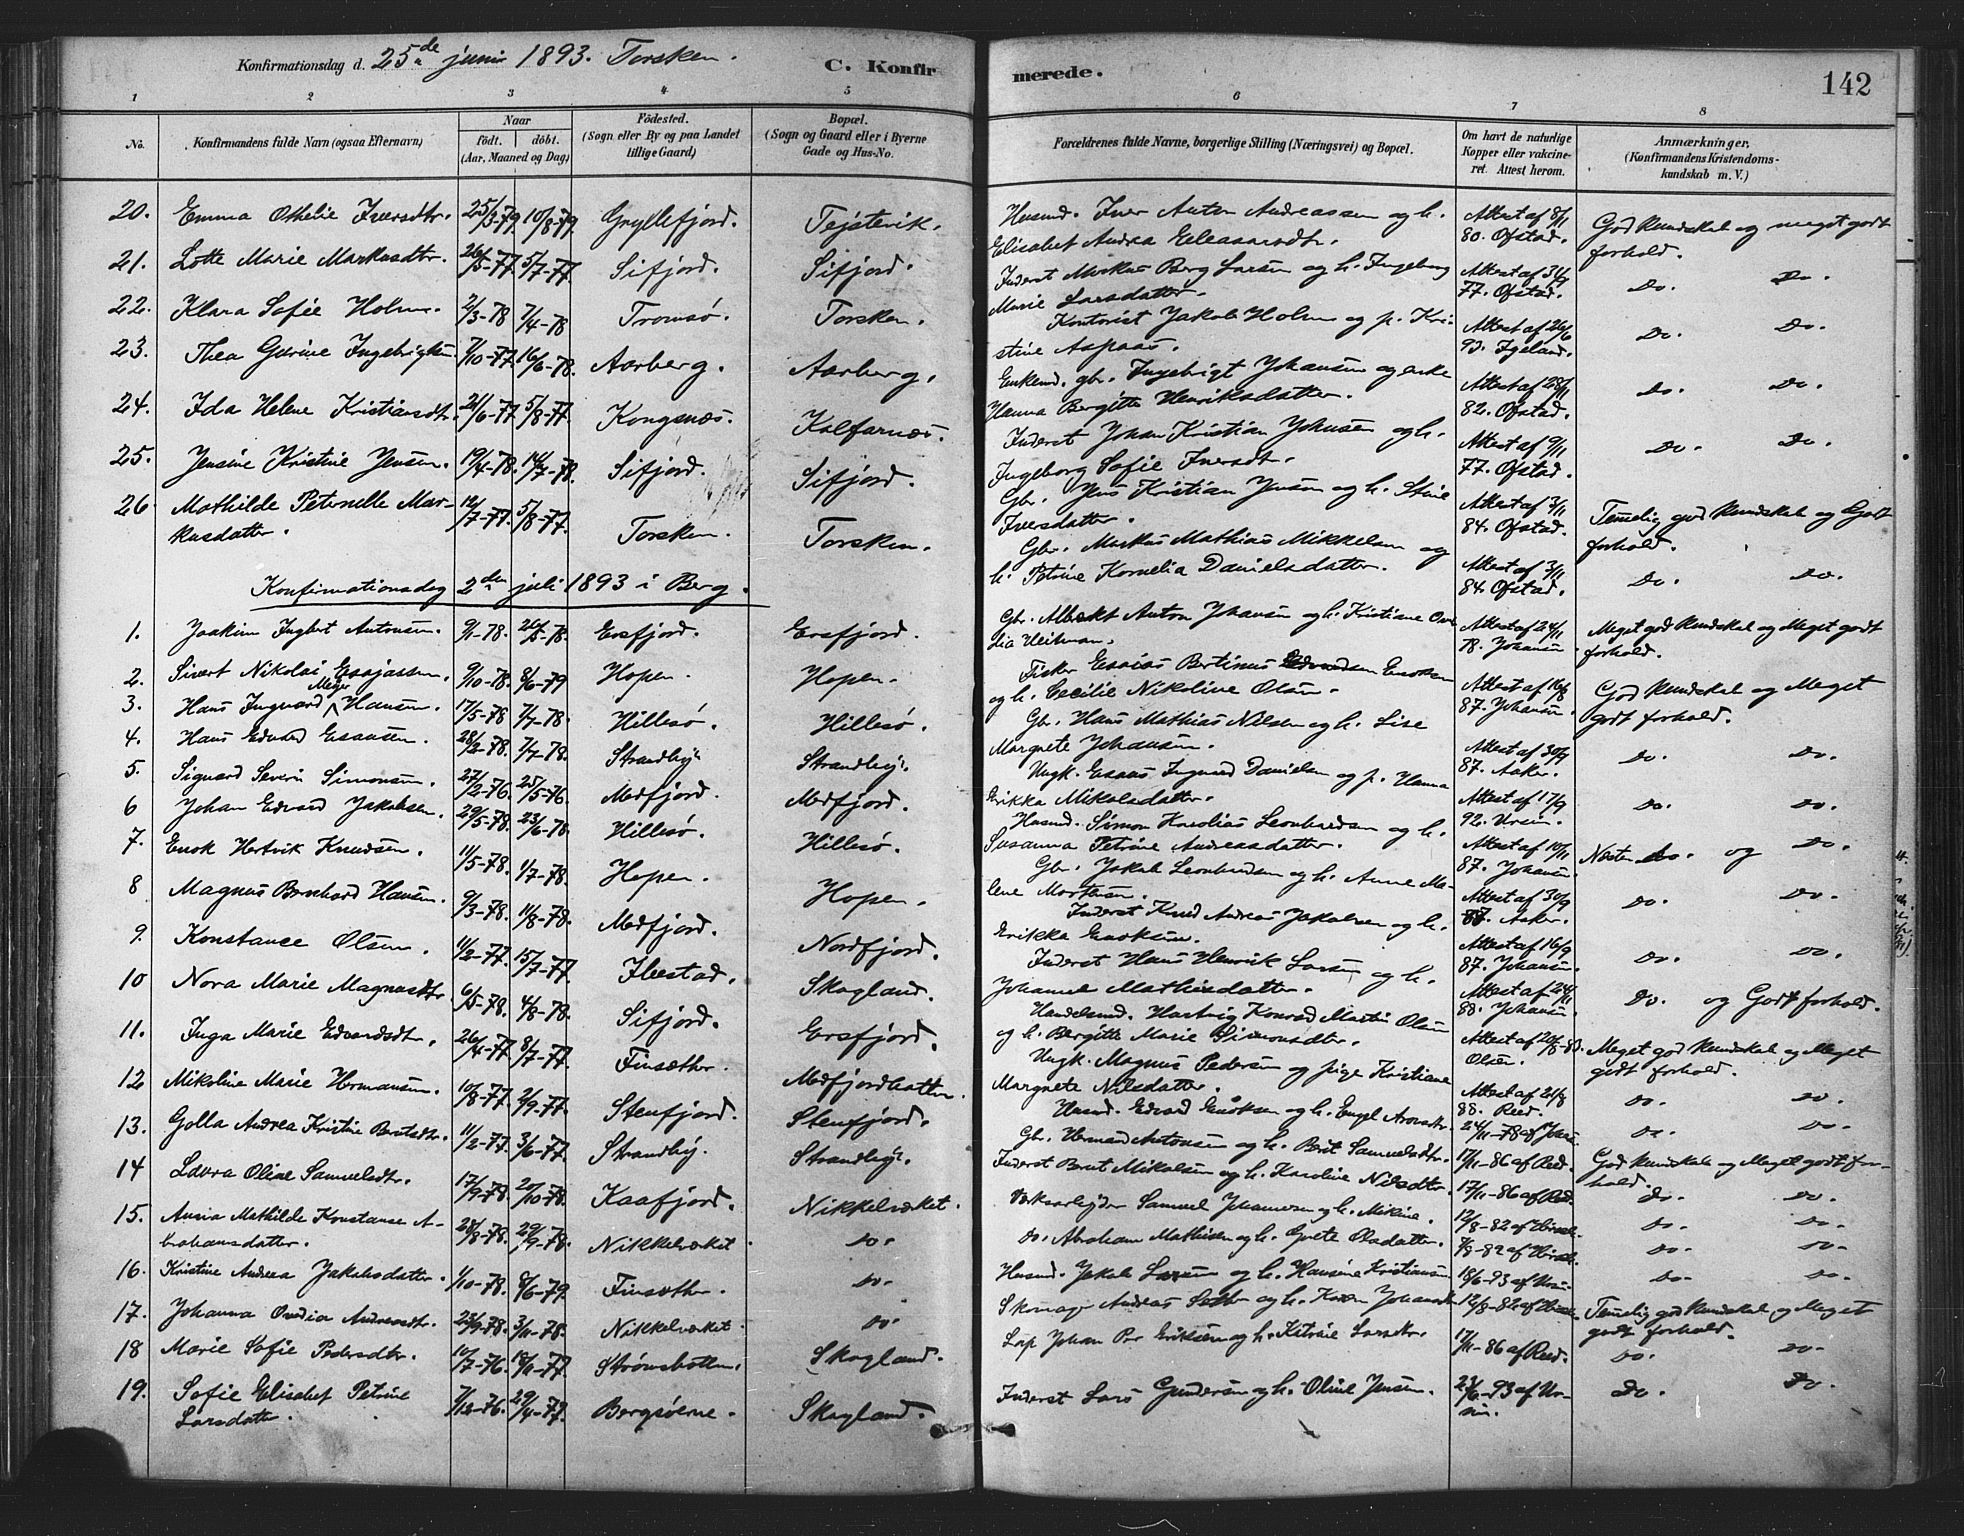 Konfirmationsdag d. 25de juni 1893. Torsken. C. Konfirmerede. 142
1 2 3 4 5 6 7 8
No. Konfirmandens fulde Navn (ogsaa Efternavn) Naar födt. döbt. (Aar, Maaned og Dag) Födested. (Sogn eller By og paa Landet tillige Gaard) Bopæl. (Sogn og Gaard eller i Byerne Gade og Hus-No. Forældrenes fulde Navne, borgerlige Stilling (Næringsvei) og Bopæl. Om havt de naturlige Kopper eller vakcineret. Attest herom. Anmærkninger. (Konfirmandens Kristendomskundskab m. V.)
20. Emma Othelie Iversdtr. 25/3-79 10/8-79 Gryllefjord. Tejstevik. Husmd. Iver Anton Andreassen og h. Elisabet Andrea Eleasarsdtr. Attest af 8/11 80. Ofstad. God kundskab og meget godt forhold.
21. Lotte Marie Markusdtr. 26/5-77 5/7-77. Sifjord. Sifjord. Inderst Markus Berg Larsen og h. Ingeborg Marie Larsdatter. 77. Ofstad. Do. Do.
22. Klara Sofie Holm. 2/3-78 7/4-78 Tromsø. Torsken. Kontorist Jakob Holm og p. Kristine Aspaas. Attest af 26/6 93. Do. Do.
23. Thea Gurine Ingebrigtsen. 7/10-77. 16/6-78. Aarberg. Aarberg. Enkemd. gbr. Ingebrigt Johansen og Hanna Bergitte Henriksdatter. Attest af 28/11 82. Ofstad. Do. Do.
24. Ida Helene Kristiansdtr. 21/6-77 5/8-77. Kongsnæs. Kalfarnæs. Inderst Johan Kristian Johnsen og h. Ingeborg Sofie Iversdt. Attest af 9/11 77. Ofstad. Do. Do.
25. Jensine Kristine Jensen. 19/4-78. 14/7-78. Sifjord. Sifjord. Gbr. Jens Kristian Jensen og h. Stine Iversdatter. Attest af 3/11 84. Ofstad. Temelig god kundskab og Godt forhold.
26. Mathilde Peternelle Markusdatter. 12/7-77. 5/8-77. Torsken. Torsken. Gbr. Markus Mathias Mikkelsen og h. Petrine Kornelia Danielsdatter. Attest af 3/11 84. Ofstad. Do. Do.
Konfirmationsdag 2den juli 1893 i Berg.
1. Joakim Ingbert Antonsen. 9/1-78. 26/5-78. Ersfjord. Ersfjord. Gbr. Albert Anton Johansen og h. Kristiane Heitman. Attest af 24/11 78. Johansen. Meget god kundskab og Meget godt forhold.
2. Sivert Nikolai Esajassen. 9/10-78. 8/6-79 Hopen. Hopen. Fisker Esaias Bertinus Enoksen og h. Cecilie Nikoline Olsen. Attest af 16/8 87. Johansen. God kundskab og Meget godt forhold.
3. Hans Ingvard Meyer Hansen. 17/5-78 7/7-78. Hillesø. Hillesø. Gbr. Hans Mathias Nilsen og h. Lise Margrete Johansen. Attest af 30/9 87. Aaker. Do. Do.
4. Hans Edvard Esausen. 28/2-78. 7/7-78. Strandby. Strandby. Ungk. Esaus Ingvard Danielsen og p. Hanna Erikka Mikalsdatter. Attest af 17/9 92. Ursin. Do. Do.
5. Sigvard Severin Simonsen. 27/2-76. 25/5-76. Medfjord. Medfjord. Husmd. Simon Karolias Leonhardsen og h. Susanna Petrine Andreasdatter. Attest af 10/11 87. Johansen. Næsten do. og Do.
6 Johan Edvard Jakobsen. 29/5-78. 23/6-78. Hillesø. Hillesø. Gbr. Jakob Leonhardsen og h. Anne Malene Mortensen. Attest af 30/9 87. Aaker. Do. Do.
7. Enok Hertvik Knudsen. 11/5-78. 1/7-78. Hopen. Hopen. Inderst Knud Andreas Jakobsen og h. Erikka Enoksen. Attest af 16/9 87. Johansen. Do. Do.
8 Magnus Bernhard Hansen. 9/3-78. 11/8-78. Medfjord. Nordfjord. Inderst Hans Henrik Larsen og h. Johanne Mathisdatter. Attest af 24/11 88. Johansen. Do. og Godt forhold.
9. Konstance Olsen. 11/2-77. 15/7-77. Ibestad. Skagland. Handelsmd. Hartvig Konrad Martin Olsen og h. Bergitte Marie Simonsdtr. Attest af 20/8-83. Olsen. Meget god kundskab og Meget godt forhold.
10 Nora Marie Magnusdtr. 6/5-78. 4/8-78. Sifjord. Ersfjord. Ungk. Magnus Pedersen og pige Kristiane Margrete Nilsdatter. Attest af 21/8 88. Reed. Do. Do.
11. Inga Marie Edvardsdtr. 26/4-77 8/7-77. Finsæther. Medfjordbotten. Husmd. Edvard Enoksen og h. Engel Aronsdtr. 24/11-78 af Do. Do.
12 Nikoline Marie Hermansen. 10/8-77. 2/9-77. Stenfjord. Stenfjord. Gbr. Herman Antonsen og h. Berit Samuelsdtr. 17/11-86 af Reed. God kundskab og Meget godt forhold.
13. Golla Andrea Kristine Berntsdtr. 11/2-77. 3/6-77. Strandby. Strandby. Inderst Bernt Mikalsen og h. Karoline Nilsdtr. 17/11-86 af Reed. Do. Do.
14 Laura Oline Samuelsdtr. 17/9-78. 20/10-78. Kaafjord. Nikkelværket. Værksarbejder Samuel Johannesen og h. Mikine. 12/8-82 af Do. Do.
15. Anna Mathilde Konstanse Abrahamsdatter. 28/8-78. 29/9-78. Nikkelværket Do. Do. Abraham Mathisen og h. Grete Olsdatter. 7/8-82 af Do. Do.
16. Kristine Andrea Jakobsdatter. 1/10-78. 8/6-79. Finsæther. Do. Husmd. Jakob Larsen og h. Hansine Kristiansen 18/6-93 af Ursin Do. Do.
17. Johanna Ovedia Andreasdtr. 22/9-78. 3/11-78. Nikkelværket. Do. Skomager Andreas og h. Karen 12/8-82 af Temelig god kundskab og Meget godt forhold.
18 Marie Sofie Pedersdtr. 10/7-76. 18/11-77. Strømsbotten. Skagland. Lap Johan Per Eriksen og h. Katrine Larsdtr. 17/11-86 af Reed. Do. Do.
19. Sofie Elisabet Petrine Larsdatter. 7/12-76. 29/4-77. Bergsøerne. Skagland. Inderst Lars Gundersen og h. Oline Jensen. 23/6-93 af Ursin. Do. Do.